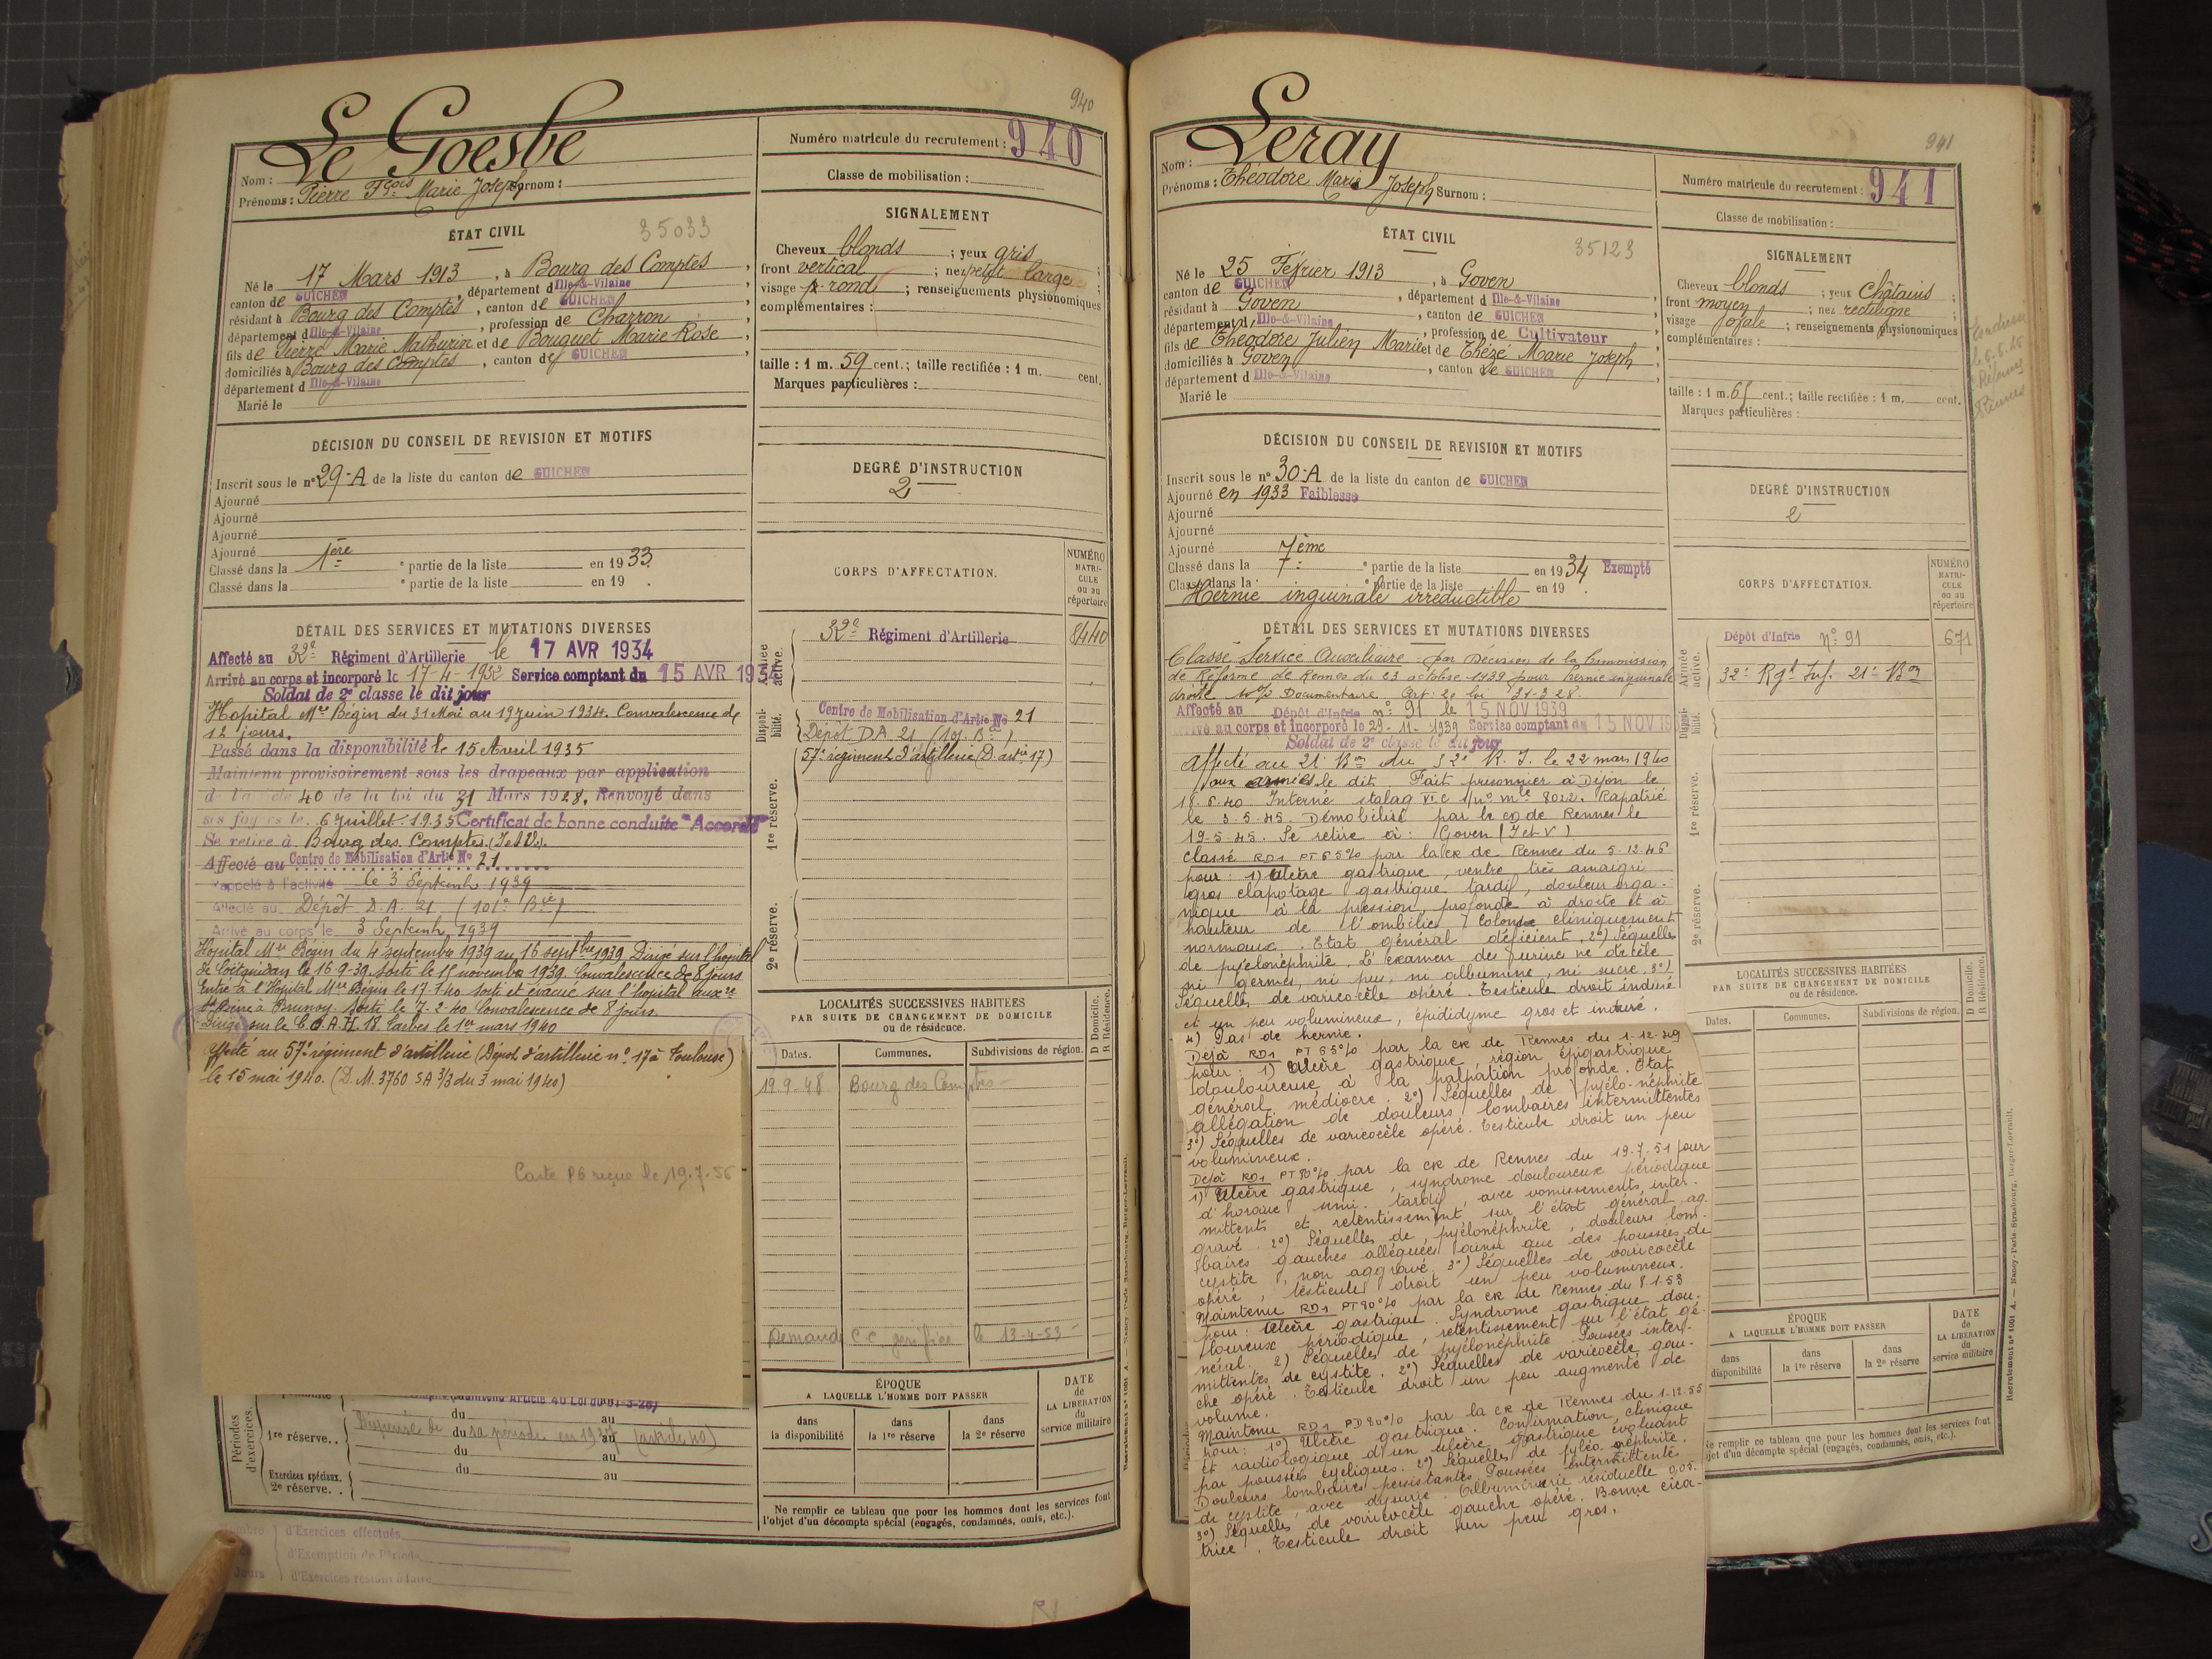 940
Le Goesbe
Nom :
Prénoms : Pierre Fçois Marie Joseph Surnom :
Numéro matricule du recrutement : 940
Classe de mobilisation :
ÉTAT CIVIL
35033
Né le 17 Mars 1913, à Bourg des Comptes,
canton de GUICHEN, département d Ille-&-Vilaine,
résidant à Bourg des Comptes, canton de GUICHEN,
département d Ille-&-Vilaine, profession de Charron,
fils de Pierre Marie Mathurin et de Bouguet Marie Rose,
domiciliés à Bourg des Comptes, canton de GUICHEN,
département d Ille-&-Vilaine
Marié le
SIGNALEMENT
Cheveux blonds ; yeux gris ;
front vertical ; nez petit large ;
visage p. rond ; renseignements physionomiques
complémentaires :
taille : 1 m. 59 cent.; taille rectifiée : 1 m. cent.
Marques particulières :
DÉCISION DU CONSEIL DE REVISION ET MOTIFS
Inscrit sous le n° 29-A de la liste du canton de GUICHEN
Ajourné
Ajourné
Ajourné
Ajourné
Classé dans la 1ère partie de la liste en 1933.
Classé dans la ° partie de la liste en 19 .
DEGRÉ D'INSTRUCTION
2
CORPS D'AFFECTATION.
NUMÉRO MATRI-CULE ou au répertoire
Armée active.
32e Régiment d'Artillerie 8440
Disponi-bilité.
Centre de Mobilisation d'Artie No 21
Dépôt D.A. 21 (101e Bie)
57e régiment d'artillerie (D. artie 17)
1re réserve.
2e réserve.
DÉTAIL DES SERVICES ET MUTATIONS DIVERSES
Affecté au 32e Régiment d'Artillerie le 17 AVR 1934
Arrivé au corps et incorporé le 17-4-1932 Service comptant du 15 AVR 1934
Soldat de 2e classe le dit jour
Hopital Mre Bégin du 31 Mai au 19 juin 1934. Convalescence de
12 jours.
Passé dans la disponibilité le 15 Avril 1935
Maintenu provisoirement sous les drapeaux par application
de l'article 40 de la loi du 31 Mars 1928. Renvoyé dans
ses foyers le 6 juillet 1935 Certificat de bonne conduite "Accordé"
Se retire à Bourg des Comptes (I et V).
Affecté au Centre de Mobilisation d'Artie No 21
Rappelé à l'activité le 3 Septemb 1939
Affecté au Dépôt D.A. 21 (101e Bie)
Arrivé au corps le 3 Septemb 1939
Hopital Mre Bégin du 4 septembre 1939 au 16 septbre 1939 Dirigé sur l'hopital
de Coëtquidan le 16-9-39. Sorti le 15 novembre 1939. Convalescence de 8 jours.
Entré à l'Hopital Mre Bégin le 17-1-40 sorti et évacué sur l'hopital auxre
à Brunoy Sorti le 7-2-40 Convalescence de 8 jours.
Dirigé sur le C.O.A.H. 18 Tarbes le 1er mars 1940
Affecté au 57e régiment d'artillerie (Dépot d'artillerie n° 17 à Toulouse)
le 15 mai 1940. (D.M. 3760 SA 3/3 du 3 mai 1940)
Carte PG reçue le 19-7-56
LOCALITÉS SUCCESSIVES HABITÉES
PAR SUITE DE CHANGEMENT DE DOMICILE
ou de résidence.
D Domicile. R Résidence.
Dates. Communes. Subdivisions de région.
19-9-48 Bourg des Comptes
Demande C.C. le 13-4-53
ÉPOQUE
A LAQUELLE L'HOMME DOIT PASSER
dans la disponibilité
dans la 1re réserve
dans la 2e réserve
DATE de LA LIBÉRATION du service militaire
Périodes d'exercices.
1re réserve.. Dispensé de sa période en 1937 (article 40)
du au
du au
du au
Exercices spéciaux.
2e réserve. . du au
Ne remplir ce tableau que pour les hommes dont les services font
l'objet d'un décompte spécial (engagés, condamnés, omis, etc.).
d'Exercices effectués
d'Exemption de Période
Jours d'Exercices restant à faire
941
Leray
Nom :
Prénoms : Théodore Marie Joseph Surnom :
Numéro matricule du recrutement : 941
Classe de mobilisation :
ÉTAT CIVIL
35123
Né le 25 Février 1913, à Goven,
canton de GUICHEN, département d Ille-&-Vilaine,
résidant à Goven, canton de GUICHEN,
département d Ille-&-Vilaine, profession de Cultivateur,
fils de Théodore Julien Marie et de Thézé Marie Joseph,
domiciliés à Goven, canton de GUICHEN,
département d Ille-&-Vilaine
Marié le
SIGNALEMENT
Cheveux blonds ; yeux Châtains ;
front moyen ; nez rectiligne ;
visage ovale ; renseignements physionomiques
complémentaires :
taille : 1 m. 65 cent.; taille rectifiée : 1 m. cent.
Marques particulières :
DÉCISION DU CONSEIL DE REVISION ET MOTIFS
Inscrit sous le n° 30-A de la liste du canton de GUICHEN
Ajourné en 1933 Faiblesse
Ajourné
Ajourné
Ajourné
Classé dans la 7ème partie de la liste en 1934 Exempté
Classé dans la ° partie de la liste en 19 .
Hernie inguinale irréductible
DEGRÉ D'INSTRUCTION
2
CORPS D'AFFECTATION.
NUMÉRO MATRI-CULE ou au répertoire
Armée active.
Dépôt d'Infrie n° 91 671
32e Rgt Inf. 21e Bon
Disponi-bilité.
1re réserve.
2e réserve.
DÉTAIL DES SERVICES ET MUTATIONS DIVERSES
Classé Service Auxiliaire par Décision de la Commission
de Réforme de Rennes du 23 octobre 1939 pour hernie inguinale
droite Documentaire Art: 20 loi 31-3-28.
Affecté au Dépôt d'Infrie n° 91 le 15 NOV 1939
Arrivé au corps et incorporé le 29-11-1939 Service comptant du 15 NOV 19
Soldat de 2e classe le dit jour
Affecté au 21e Bon du 32e R.I. le 22 mars 1940
aux armées le dit Fait prisonnier à Dijon le
18-6-40 Interné stalag VI C n° mle 8022. Rapatrié
le 3-5-45. Démobilisé par le CD de Rennes le
19-5-45. Se retire à : Goven (I et V)
Classé RD1 PT 65% par la CR de Rennes du 5-12-46
pour : 1) Ulcère gastrique, ventre très amaigri
gros clapotage gastrique tardif, douleur orga-
nique à la pression profonde à droite et à
hauteur de l'ombilic. Colonse cliniquement
normaux. Etat général déficient. 2°) Séquelles
de pyelonéphrite. L'examen des urines ne décèle
ni germes, ni pus, ni albumine, ni sucre. 3°)
Séquelles de varicocèle opéré. Testicule droit induré
et un peu volumineux, épididyme gros et induré.
4) Pas de hernie.
Déjà RD1 PT 65% par la CR de Rennes du 1-12-49
pour : 1) Ulcère gastrique, région épigastrique
douloureuse à la palpation profonde. Etat
général médiocre. 2°) Séquelles de pyélo-néphrite
allégation de douleurs lombaires intermittentes
3°) Séquelles de varicocèle opéré. Testicule droit un peu
volumineux.
Déjà RD1 PT 80% par la CR de Rennes du 19-7-51 pour
1) Ulcère gastrique, syndrome douloureux périodique
d'horaire semi-tardif, avec vomissements inter-
mittents et retentissement sur l'état général, ag-
gravé. 2°) Séquelles de pyélonéphrite, douleurs lom-
baires gauches alléguées ainsi que des poussées de
cystite, non aggravé. 3°) Séquelles de varicocèle
opéré, testicule droit un peu volumineux.
Maintenu RD1 PT 80% par la CR de Rennes du 8-1-53
pour : Ulcère gastrique. Syndrome gastrique dou-
loureux périodique, retentissement sur l'état gé-
néral. 2) Séquelles de pyélonéphrite. Poussées inter-
mittentes de cystite. 2°) Séquelles de varicocèle gau-
che opéré. Testicule droit un peu augmenté de
volume.
Maintenu RD1 PD 80% par la CR de Rennes du 1-12-55
pour : 1°) Ulcère gastrique. Confirmation clinique
et radiologique d'un ulcère gastrique évoluant
par poussées cycliques. 2°) Séquelles de pyélo néphrite.
Douleurs lombaires persistantes. Poussées intermittente
de cystite, avec dysurie. Albuminurie résiduelle 0,05.
3°) Séquelles de varicocèle gauche opéré. Bonne cica-
trice. Testicule droit un peu gros.
LOCALITÉS SUCCESSIVES HABITÉES
PAR SUITE DE CHANGEMENT DE DOMICILE
ou de résidence.
D Domicile. R Résidence.
Dates. Communes. Subdivisions de région.
ÉPOQUE
A LAQUELLE L'HOMME DOIT PASSER
dans disponibilité
dans la 1re réserve
dans la 2e réserve
DATE de LA LIBÉRATION du service militaire
Ne remplir ce tableau que pour les hommes dont les services font
objet d'un décompte spécial (engagés, condamnés, omis, etc.).
Recrutement n° 1001 A. — Nancy-Paris-Strasbourg, Berger-Levrault.